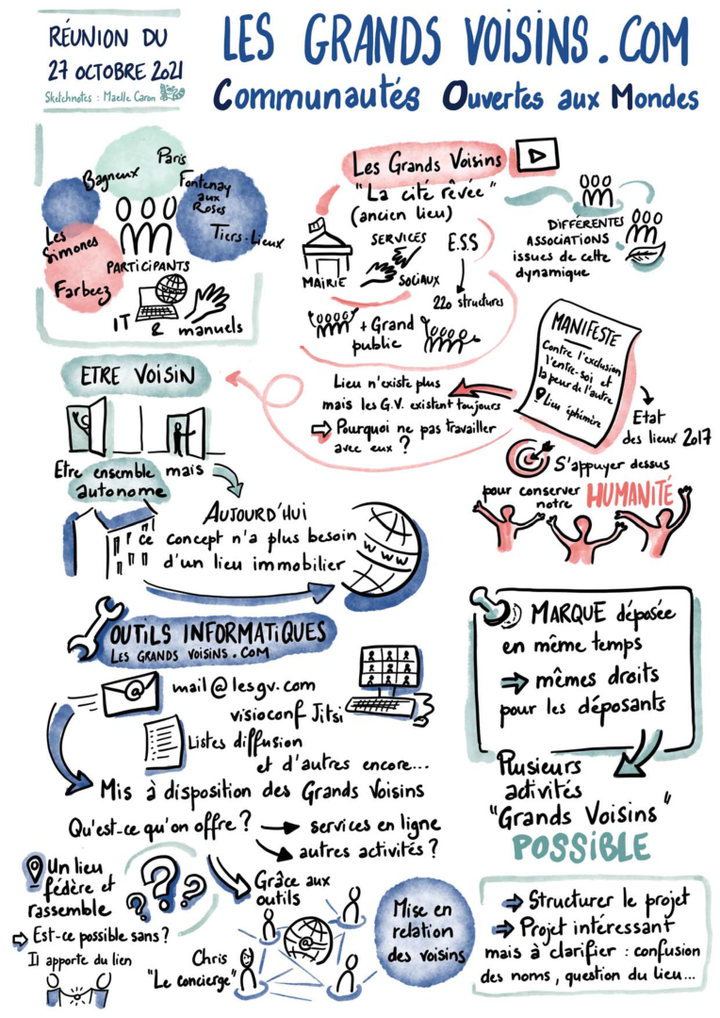 RÉUNION DU
27 OCTOBRE 2021
Sketchnotes : Maelle Caron
LES GRANDS VOISINS.COM
Communautés Ouvertes aux Mondes
Paris
Bagneux
Fontenay
aux
Roses
Les
Simones
Tiers-Lieux
PARTICIPANTS
Farbeez
IT & manuels
Les Grands Voisins
"La cité rêvée"
(ancien lieu)
SERVICES
E.S.S
MAIRIE
SOCIAUX
220 structures
+ Grand
public
DIFFÉRENTES
ASSOCIATIONS
issues de cette
dynamique
MANIFESTE
Contre l'exclusion
l'entre-soi et
la peur de l'autre
Lieu éphémère
Etat
des lieux 2017
Lieu n'existe plus
mais les G.V. existent toujours
⇨ Pourquoi ne pas travailler
avec eux ?
S'appuyer dessus
pour conserver
notre HUMANITÉ
ETRE VOISIN
Etre ensemble mais
autonome
AUJOURD'HUI
ce concept n'a plus besoin
d'un lieu immobilier
WWW
OUTILS INFORMATIQUES
LES GRANDS VOISINS.COM
@
mail@lesgv.com
visioconf Jitsi
Listes diffusion
et d'autres encore...
Mis à disposition des Grands Voisins
MARQUE déposée
en même temps
→ mêmes droits
pour les déposants
Plusieurs
activités
"Grands Voisins"
POSSIBLE
Qu'est-ce qu'on offre ? → services en ligne
→ autres activités ?
Un lieu
fédère et
rassemble
⇨ Est-ce possible sans ?
Il apporte du lien
???
Grâce aux
outils
@
Chris
"Le concierge"
Mise en
relation
des voisins
→ Structurer le projet
→ Projet intéressant
mais à clarifier : confusion
des noms, question du lieu...